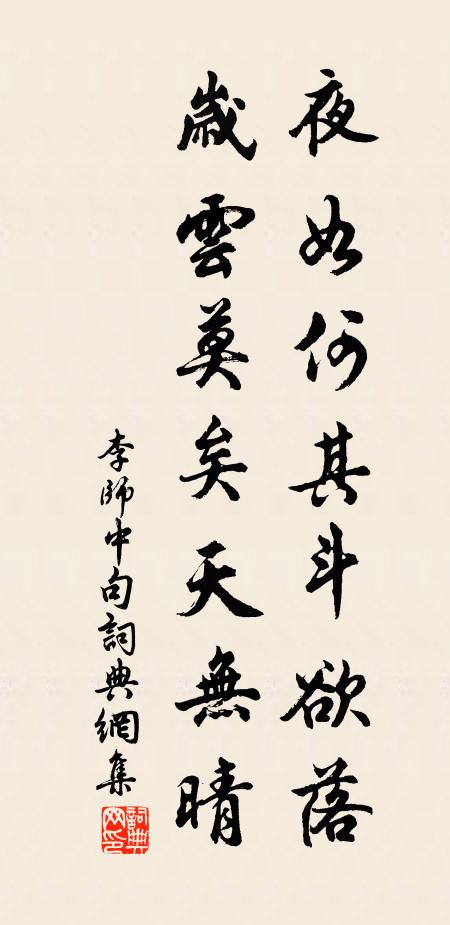 夜如何其斗欲落
歲雲莫矣天無晴
李師中句詞典網集
詞典网印